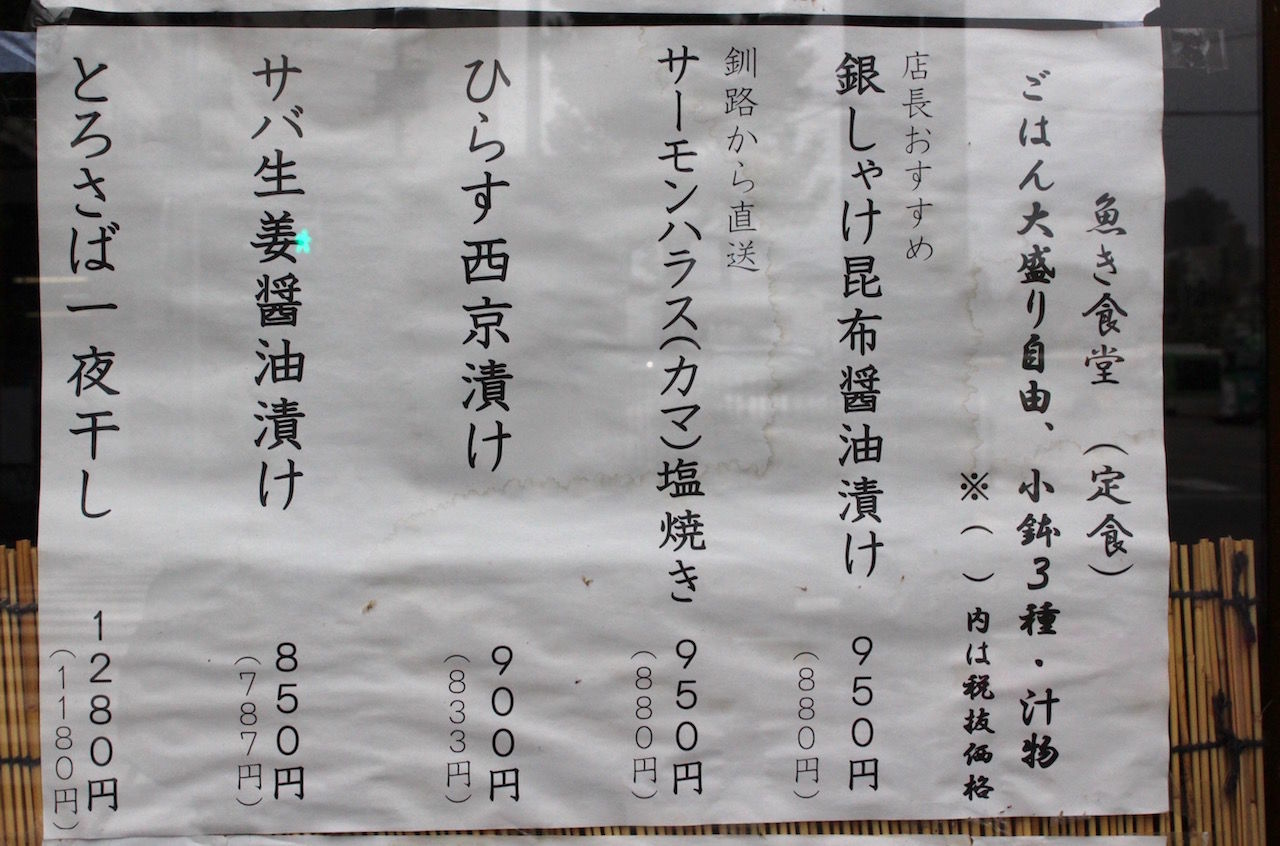 魚き食堂 (定食)
ごはん大盛り自由、小鉢3種・汁物
※( )内は税抜価格
店長おすすめ
銀しゃけ昆布醤油漬け 950円
(880円)
釧路から直送
サーモンハラス(カマ)塩焼き 950円
(880円)
ひらす西京漬け 900円
(833円)
サバ生姜醤油漬け 850円
(787円)
とろさば一夜干し 1280円
(1180円)